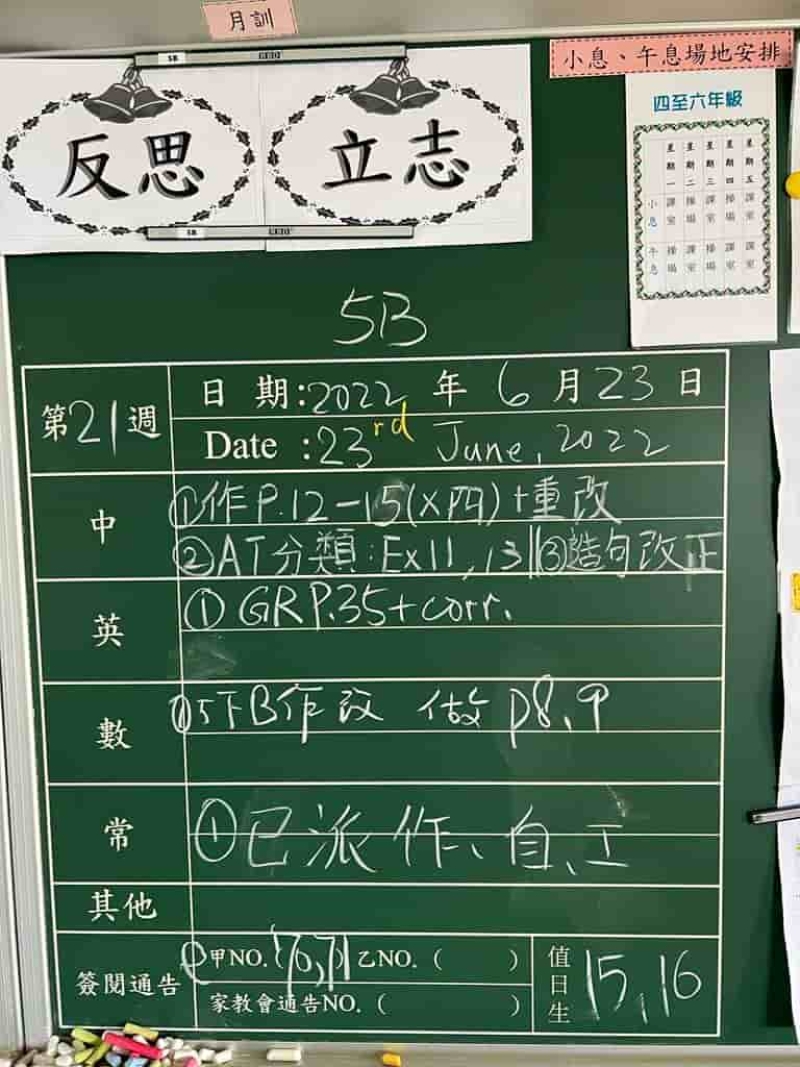 月訓
反思
立志
小息、午息場地安排
四至六年級
星期一 星期二 星期三 星期四 星期五
小息 課室 操場 課室 操場 課室
午息 操場 課室 操場 課室 課室
5B
第21週
日 期:2022 年 6 月 23 日
Date :23rd June, 2022
中
①作P.12-15(x四)+重改
②AT分類:Ex11, 13 ③造句改正
英
① GR P.35+corr.
數
①5下B作改 做 p8、9
常
①已派作、自、工
其他
簽閱通告
甲NO.(70,71) 乙NO.( )
家教會通告NO.( )
值日生
15,16